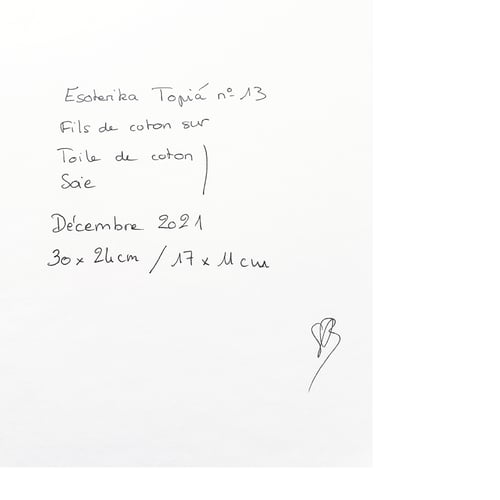 Esoterika Topiá nº 13
Fils de coton sur
Toile de coton
Soie
Décembre 2021
30 x 24 cm / 17 x 11 cm